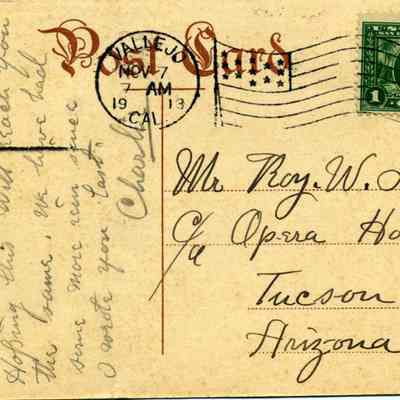 Post Card
VALLEJO
NOV 7
7 AM
19 13
CAL.
1
Hoping this will reach you
the same. We have had
some more rain since
I wrote you last.
Charlie
Mr Roy. W.
c/o Opera Ho
Tucson
Arizona